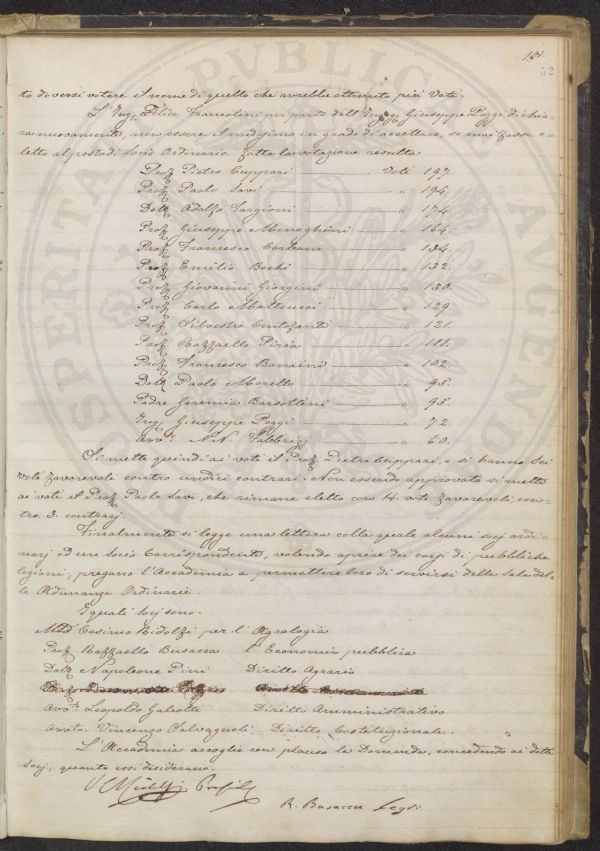 131.
32
to doversi votare il nome di quello che avrebbe ottenuto più Voti.
L'Ing. Felice Francolini per parte dell'Ingeg. Giuseppe Poggi dichia-
ra nuovamente, non essere il medesimo in grado di accettare, se mai fosse e-
letto al posto di Socio Ordinario. Fatta la votazione resulta
Prof. Pietro Cuppari Voti 197.
Prof. Paolo Savi " 194.
Dott. Adolfo Targioni " 174.
Prof. Giuseppe Meneghini " 164.
Prof. Francesco " 134.
Prof. Emilio Bechi " 132.
Prof. Giovanni Giorgini " 130.
Prof. Carlo Matteucci " 129.
Prof. Silvestro Centofanti " 121.
Prof. Raffaello Piria " 111.
Prof. Francesco Bonaini " 102.
Dott. Paolo Morello " 95.
Padre Geremia Barsottini " 95.
Ing. Giuseppe Poggi " 72.
Avv. N.N. Fabbrizj " 60.
Si mette quindi ai voti il Prof. Pietro Cuppari, e si hanno Sei
voti favorevoli contro undici contrari. Non essendo approvato si mette
ai voti il Prof. Paolo Savi, che rimane eletto con 14. voti favorevoli, con-
tro 3. contrarj.
Finalmente si legge una lettera colla quale alcuni socj ordi-
narj ed un Socio Corrispondente, volendo aprire dei corsi di pubbliche
lezioni, pregano l'Accademia a permettere loro di servirsi della Sala del-
le Adunanze Ordinarie.
I quali Socj sono.
March. Cosimo Ridolfi per l'Agrologia
Prof. Raffaello Busacca l'Economia pubblica
Dott. Napoleone Pini Diritto Agrario
Avv. Leopoldo Galeotti Diritto Amministrativo
Avv. Vincenzo Salvagnoli Diritto Costituzionale. "
L'Accademia accoglie con plauso la Domanda, concedendo ai detti
Socj, quanto essi desiderano.
R. Busacca Segr.